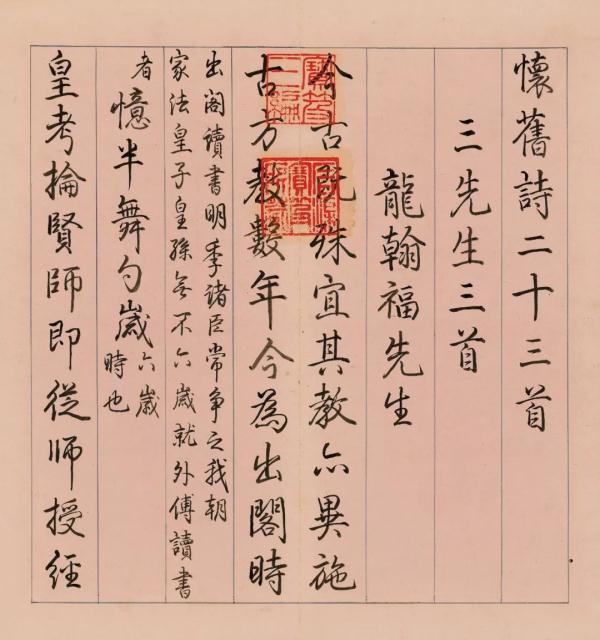 懷舊詩二十三首
三先生三首
龍翰福先生
今古既殊宜其教亦異施
古方教數年今為出閣時
出閣讀書明季諸臣常爭之我朝
家法皇子皇孫無不六歲就外傅讀書
者
憶半舞勺歲
六歲
時也
皇考掄賢師即從師授經
寶笈
三編